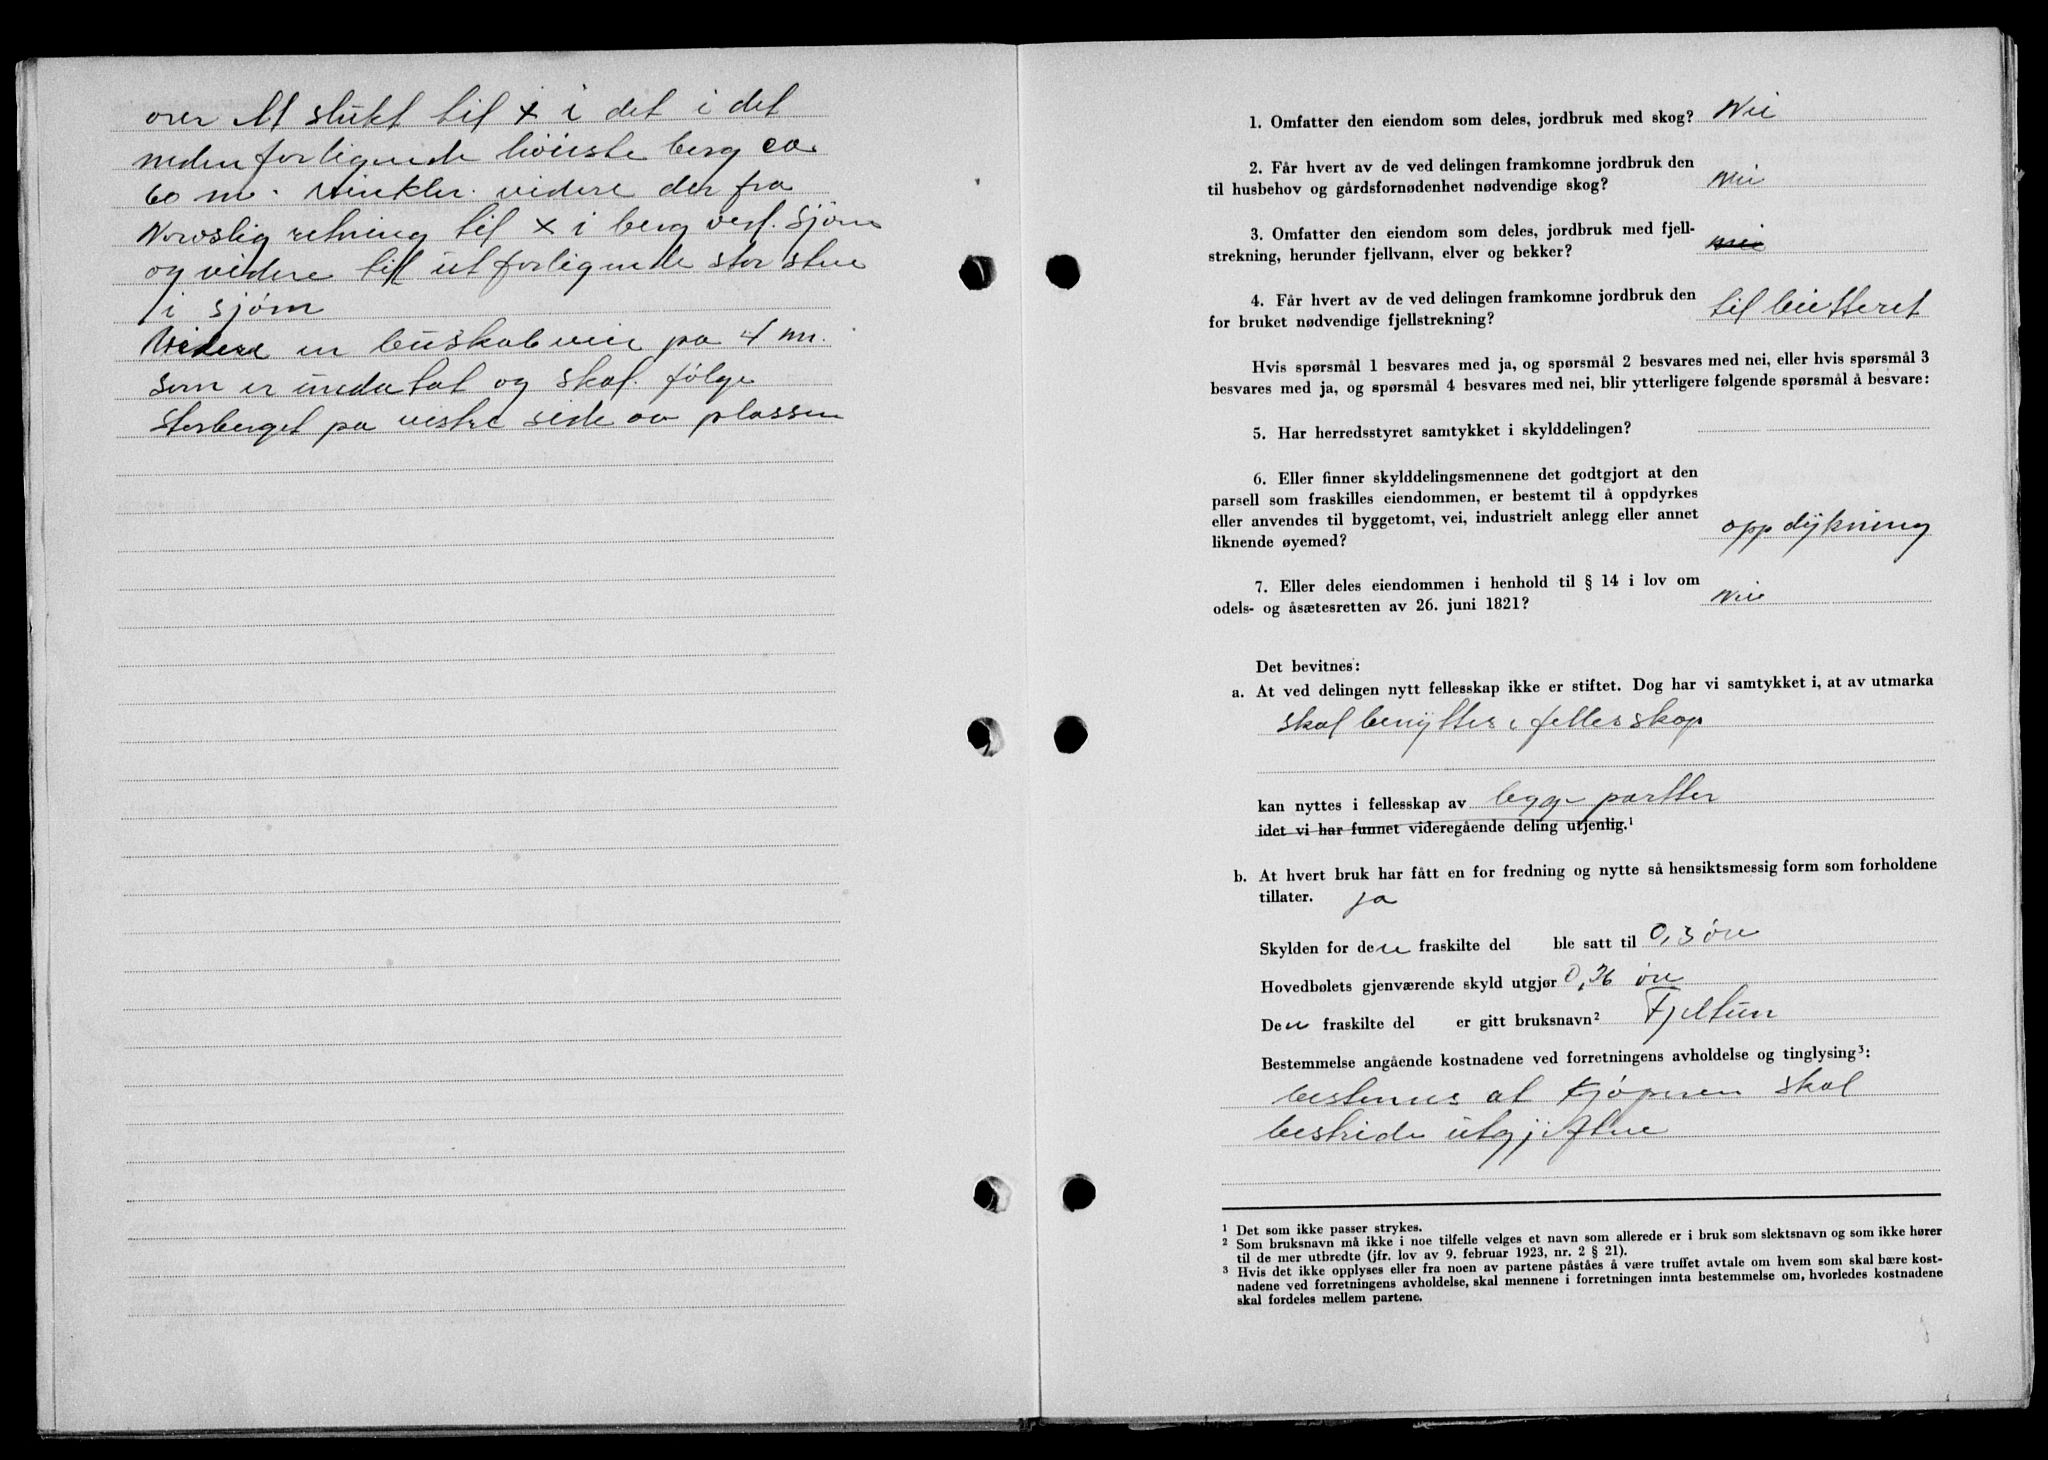 over et stükt til × i det i det
nedenforligende høieste berg ca
60 m. vinkler videre der fra
retning til × i berg ved sjøen
og videre til utforligende stor sten
i sjøen
Videre en buskabveie på 4 m.
som er undatat og skal følge
storberget på vestre side av plassen
1. Omfatter den eiendom som deles, jordbruk med skog? Nei
2. Får hvert av de ved delingen framkomne jordbruk den
til husbehov og gårdsfornødenhet nødvendige skog? Nei
3. Omfatter den eiendom som deles, jordbruk med fjell-
strekning, herunder fjellvann, elver og bekker? nei
4. Får hvert av de ved delingen framkomne jordbruk den
for bruket nødvendige fjellstrekning? til beitteret
Hvis spørsmål 1 besvares med ja, og spørsmål 2 besvares med nei, eller hvis spørsmål 3
besvares med ja, og spørsmål 4 besvares med nei, blir ytterligere følgende spørsmål å besvare:
5. Har herredsstyret samtykket i skylddelingen?
6. Eller finner skylddelingsmennene det godtgjort at den
parsell som fraskilles eiendommen, er bestemt til å oppdyrkes
eller anvendes til byggetomt, vei, industrielt anlegg eller annet
liknende øyemed? oppdykning
7. Eller deles eiendommen i henhold til § 14 i lov om
odels- og åsætesretten av 26. juni 1821? Nei
Det bevitnes:
a. At ved delingen nytt fellesskap ikke er stiftet. Dog har vi samtykket i, at av utmarka
skal benyttes i felles skap
kan nyttes i fellesskap av begge partter
idet vi har funnet videregående deling utjenlig.¹
b. At hvert bruk har fått en for fredning og nytte så hensiktsmessig form som forholdene
tillater. ja
Skylden for den fraskilte del ble satt til 0,3 øre
Hovedbølets gjenværende skyld utgjør 0,36 øre
Den fraskilte del er gitt bruksnavn² Fjeltun
Bestemmelse angående kostnadene ved forretningens avholdelse og tinglysing³:
bestemes at kjøperen skal
bestride utgjiftene
¹ Det som ikke passer strykes.
² Som bruksnavn må ikke i noe tilfelle velges et navn som allerede er i bruk som slektsnavn og som ikke hører
til de mer utbredte (jfr. lov av 9. februar 1923, nr. 2 § 21).
³ Hvis det ikke opplyses eller fra noen av partene påståes å være truffet avtale om hvem som skal bære kost-
nadene ved forretningens avholdelse, skal mennene i forretningen innta bestemmelse om, hvorledes kostnadene
skal fordeles mellem partene.